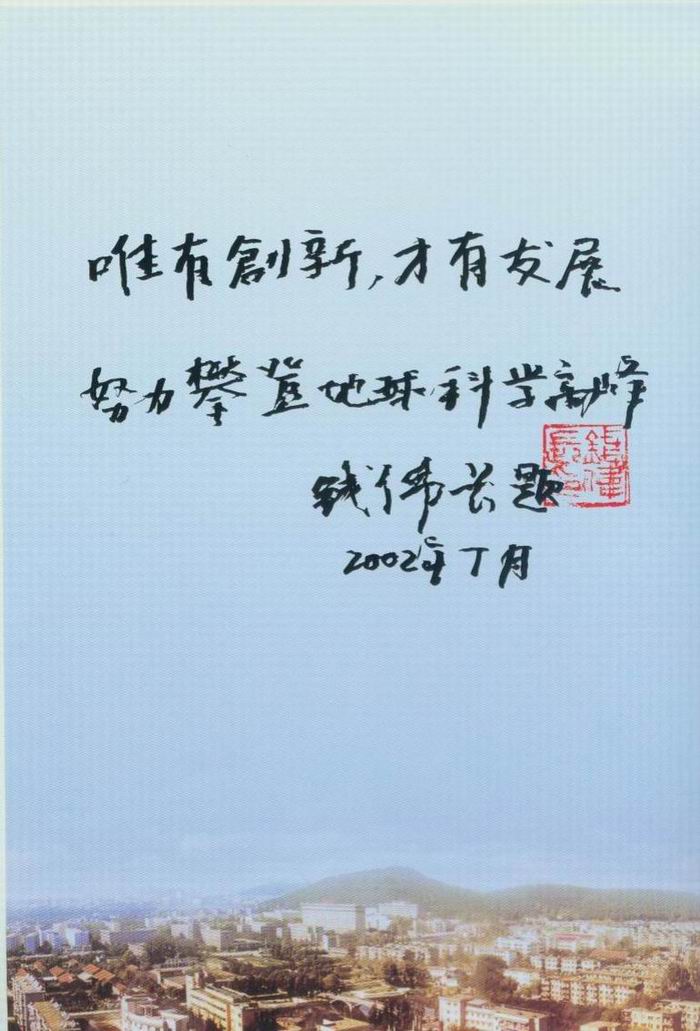 唯有創新,才有发展
努力攀登地球科学高峰
钱伟长题
2002年7月